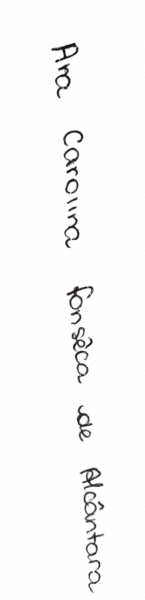 Ana Carolina Fonsêca de Alcântara